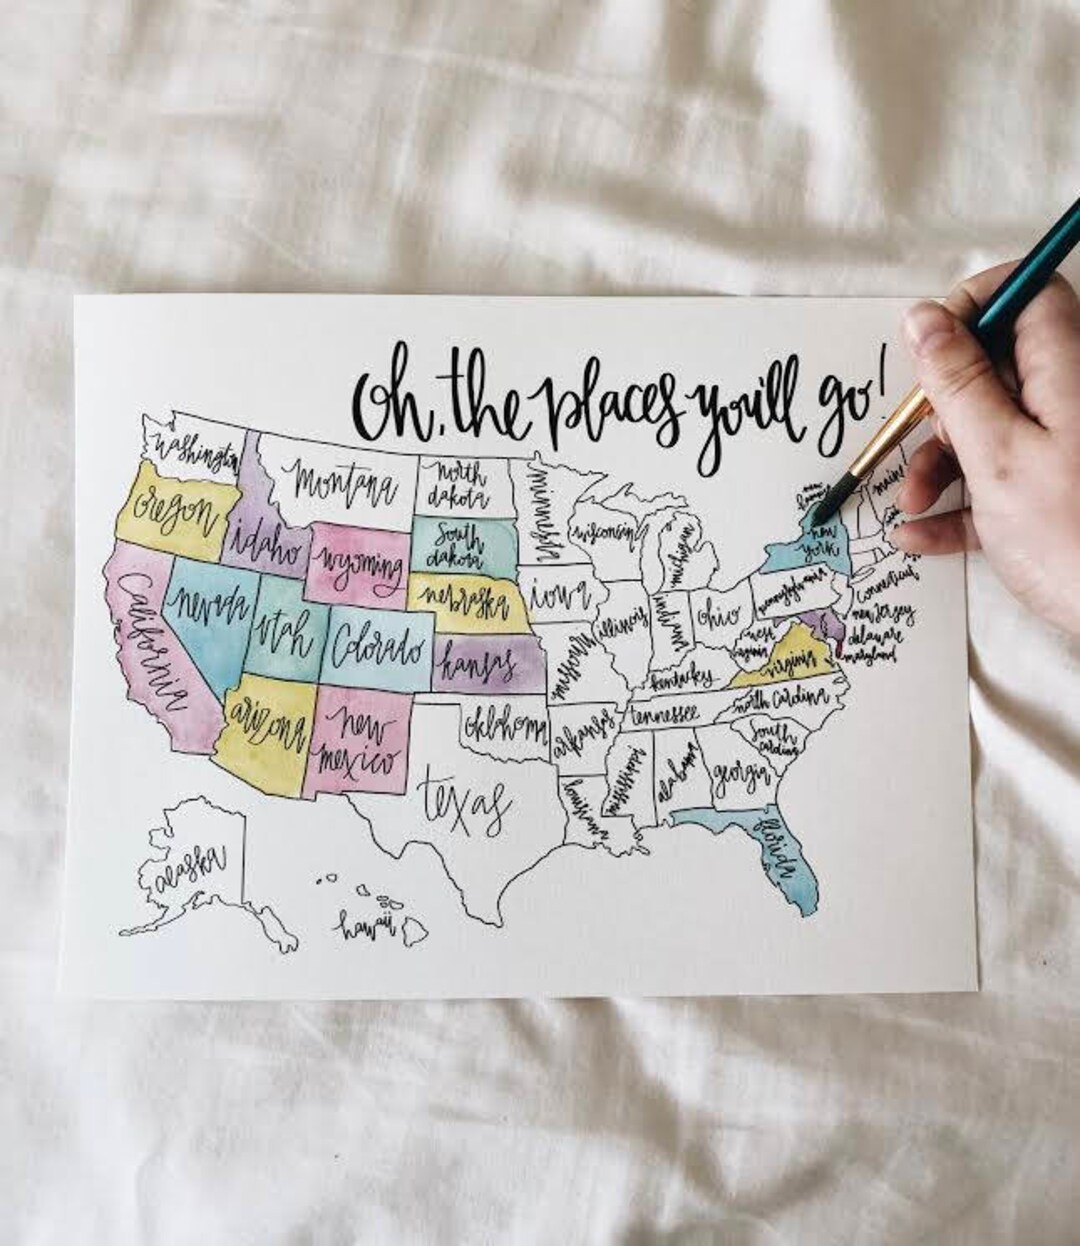 Oh, the places you'll go!
washington
oregon
california
idaho
nevada
montana
wyoming
utah
arizona
Colorado
new
mexico
north
dakota
South
dakota
nebraska
kansas
oklahoma
texas
minnesota
iowa
missouri
arkansas
louisiana
wisconsin
illinois
michigan
indiana
ohio
kentucky
tennessee
mississippi
alabama
georgia
florida
South
Carolina
north Carolina
virginia
west
virginia
pennsylvania
new
york
maine
Connecticut
new Jersey
delaware
maryland
alaska
hawaii